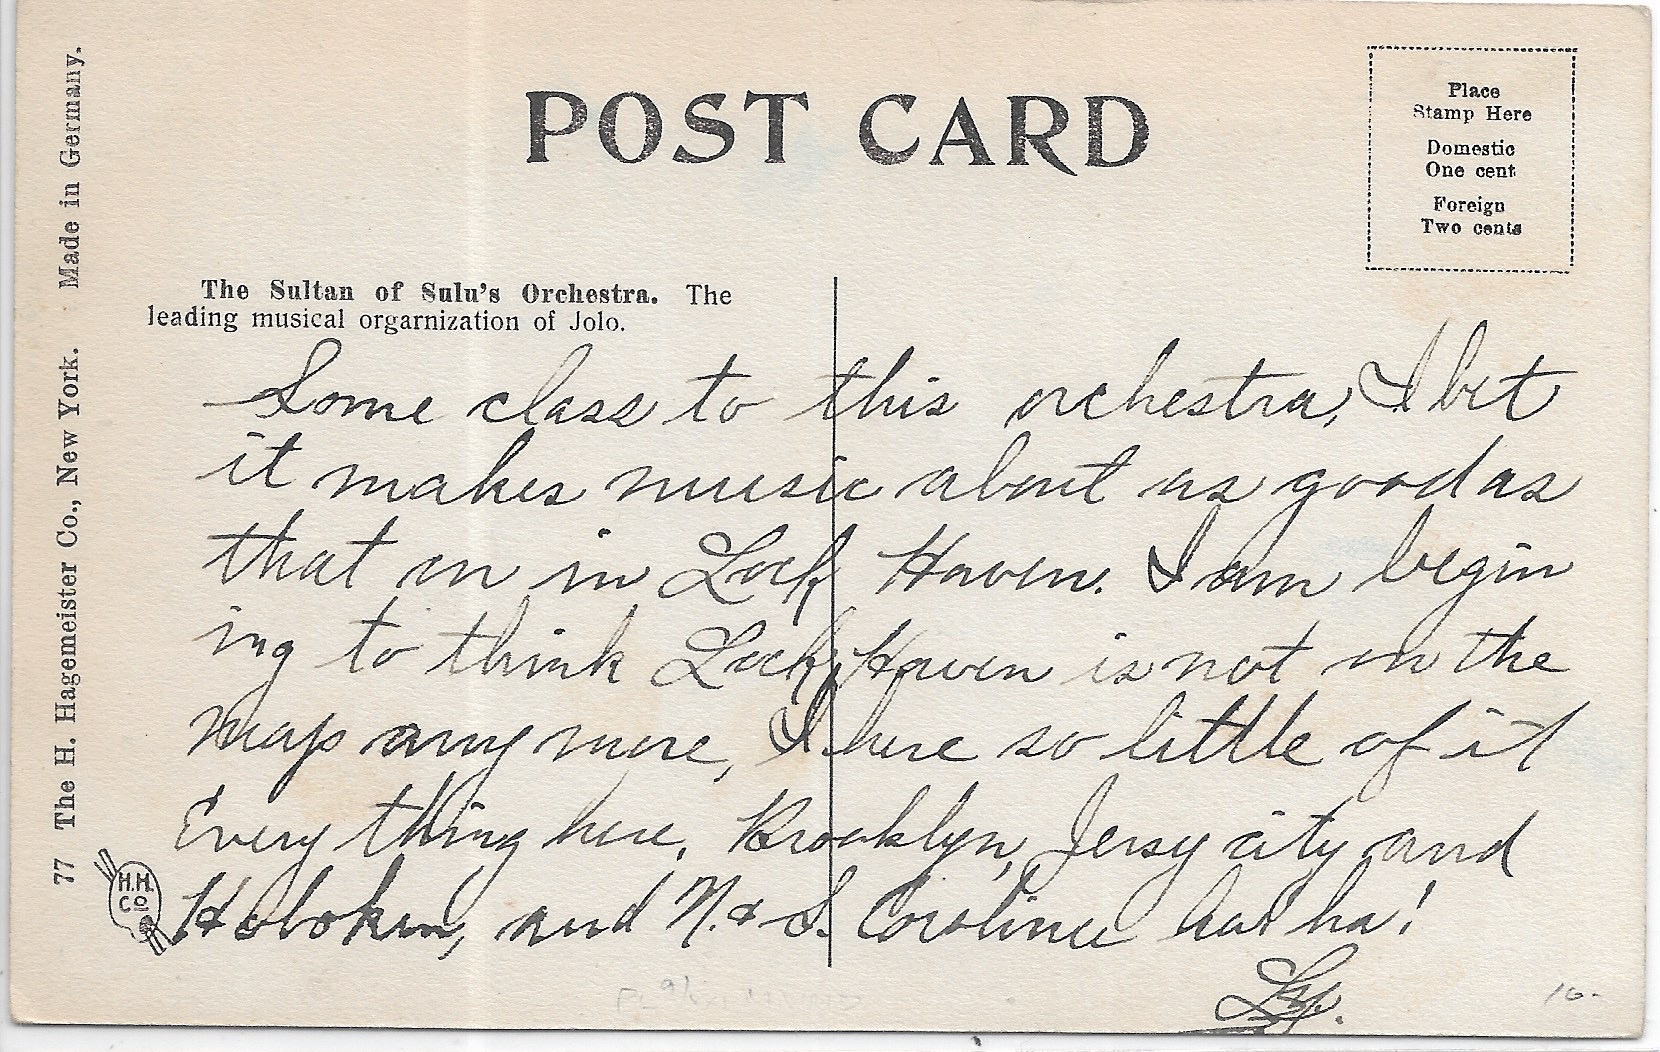 POST CARD
Place
Stamp Here
Domestic
One cent
Foreign
Two cents
77 The H. Hagemeister Co., New York. Made in Germany.
The Sultan of Sulu's Orchestra. The
leading musical orgarnization of Jolo.
Some class to this orchestra, I bet
it makes music about as good as
that on in Lock Haven. I am begin
ing to think Lock Haven is not on the
map any more, I here so little of it
Every thing here, Brooklyn, Jersy city and
Hoboken, and N. & S. Caroline ha! ha!
H.H.
Co
10.-